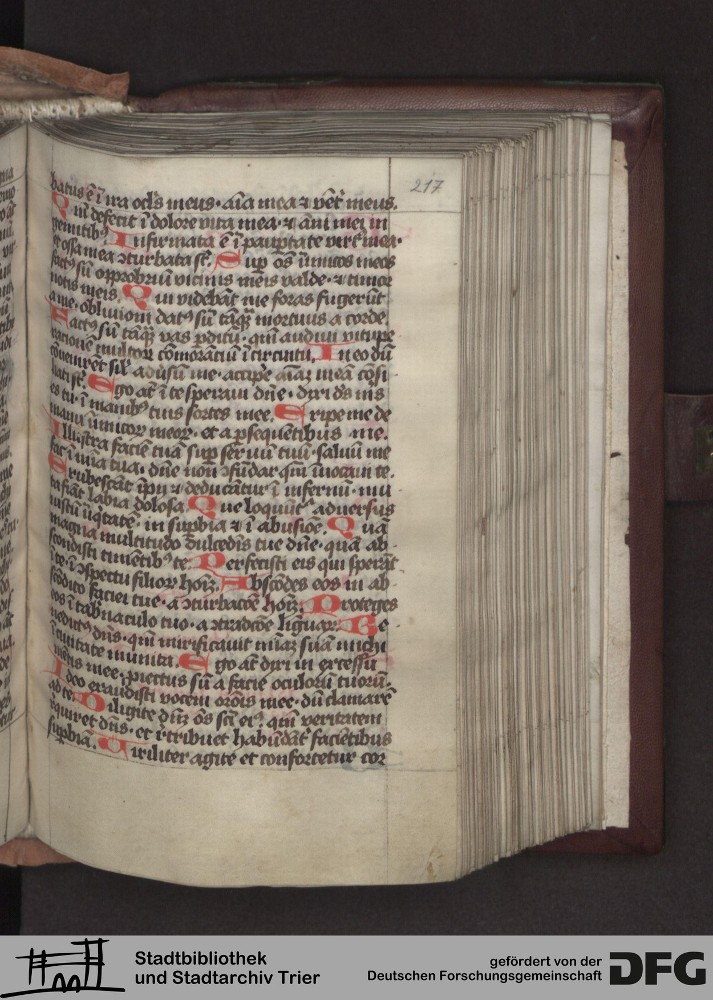 217
batus ē ī ira ocl's meus · aīa mea ⁊ vēt̄ meus.
Qm̄ defecit ī dolore vita mea · ⁊ āni mei in
gemitib⁹ Infirmata ē ī paupertate virt̄ mea ·
et ossa mea ɔturbata st̄. Sup om̄s inimicos meos
fact⁹ sū opprobriū vicinis meis valde · ⁊ timor
notis meis. Qui videbāt me foras fugerūt
a me · oblivioni dat⁹ sū tāq̄ mortuus a corde
Fact⁹ sū tāq̄ vas p̄ditū · qm̄ audivi vitupe
rationē multoꝝ cōmorātiū ī circuitu, In eo dū
cōvenirēt sil̄ adūsū me · accip̄e aīaȝ meā cōsi
liati st̄. Ego at̄ ī te speravi dn̄e · dixi d's m's
es tu · ī manib⁹ tuis sortes mee. Eripe me de
manu inimicoꝝ meoꝝ · et a p̄sequētibus me.
Illustra faciē tuā sup servū tuū · salvū me
fac ī mīa tua · dn̄e non ɔfūdar qm̄ īvocavi te.
Erubescāt īpii ⁊ deducātur ī infernū · mu
ta fiāt labia dolosa Que loquūt̄ adversus
iustū iīqtatē · in supbia ⁊ ī abusiōe. Quā
magna multitudo dulcedīs tue dn̄e · quā ab
scondisti timētib⁹ te. Perfecisti eis qui sperāt
ī te · ī ɔspectu filioꝝ hoīȝ. Abscōdes eos in ab
scōdito faciei tue · a ɔturbatōe hoīȝ. Proteges
eos ī tabnaculo tuo · a ɔtradictōe liguaꝝ. Be
nedict⁹ dn̄s · qm̄ mirificavit mīaȝ suā michi
ī civitate munita. Ego at̄ dixi in excessu
mētis mee · proiectus sū a facie oculorū tuorū.
Ideo exaudisti vocem orōis mee · dū clamarē
ad te. Diligite dn̄ȝ om̄s sc̄i ei⁹ · qm̄ veritatem
requiret dn̄s · et retribuet habūdāt̄ faciētibus
supbiā. Viriliter agite et confortetur cor
Stadtbibliothek
und Stadtarchiv Trier
gefördert von der
Deutschen Forschungsgemeinschaft
DFG